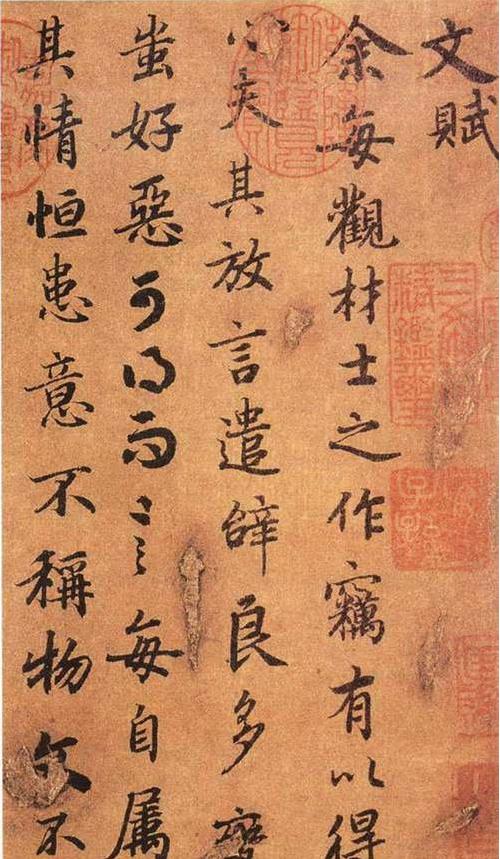 文賦
余每觀材士之作竊有以得
心夫其放言遣辭良多
蚩好惡可得而言每自屬
其情恒患意不稱物文不
三希堂精鑑璽
宜子孫